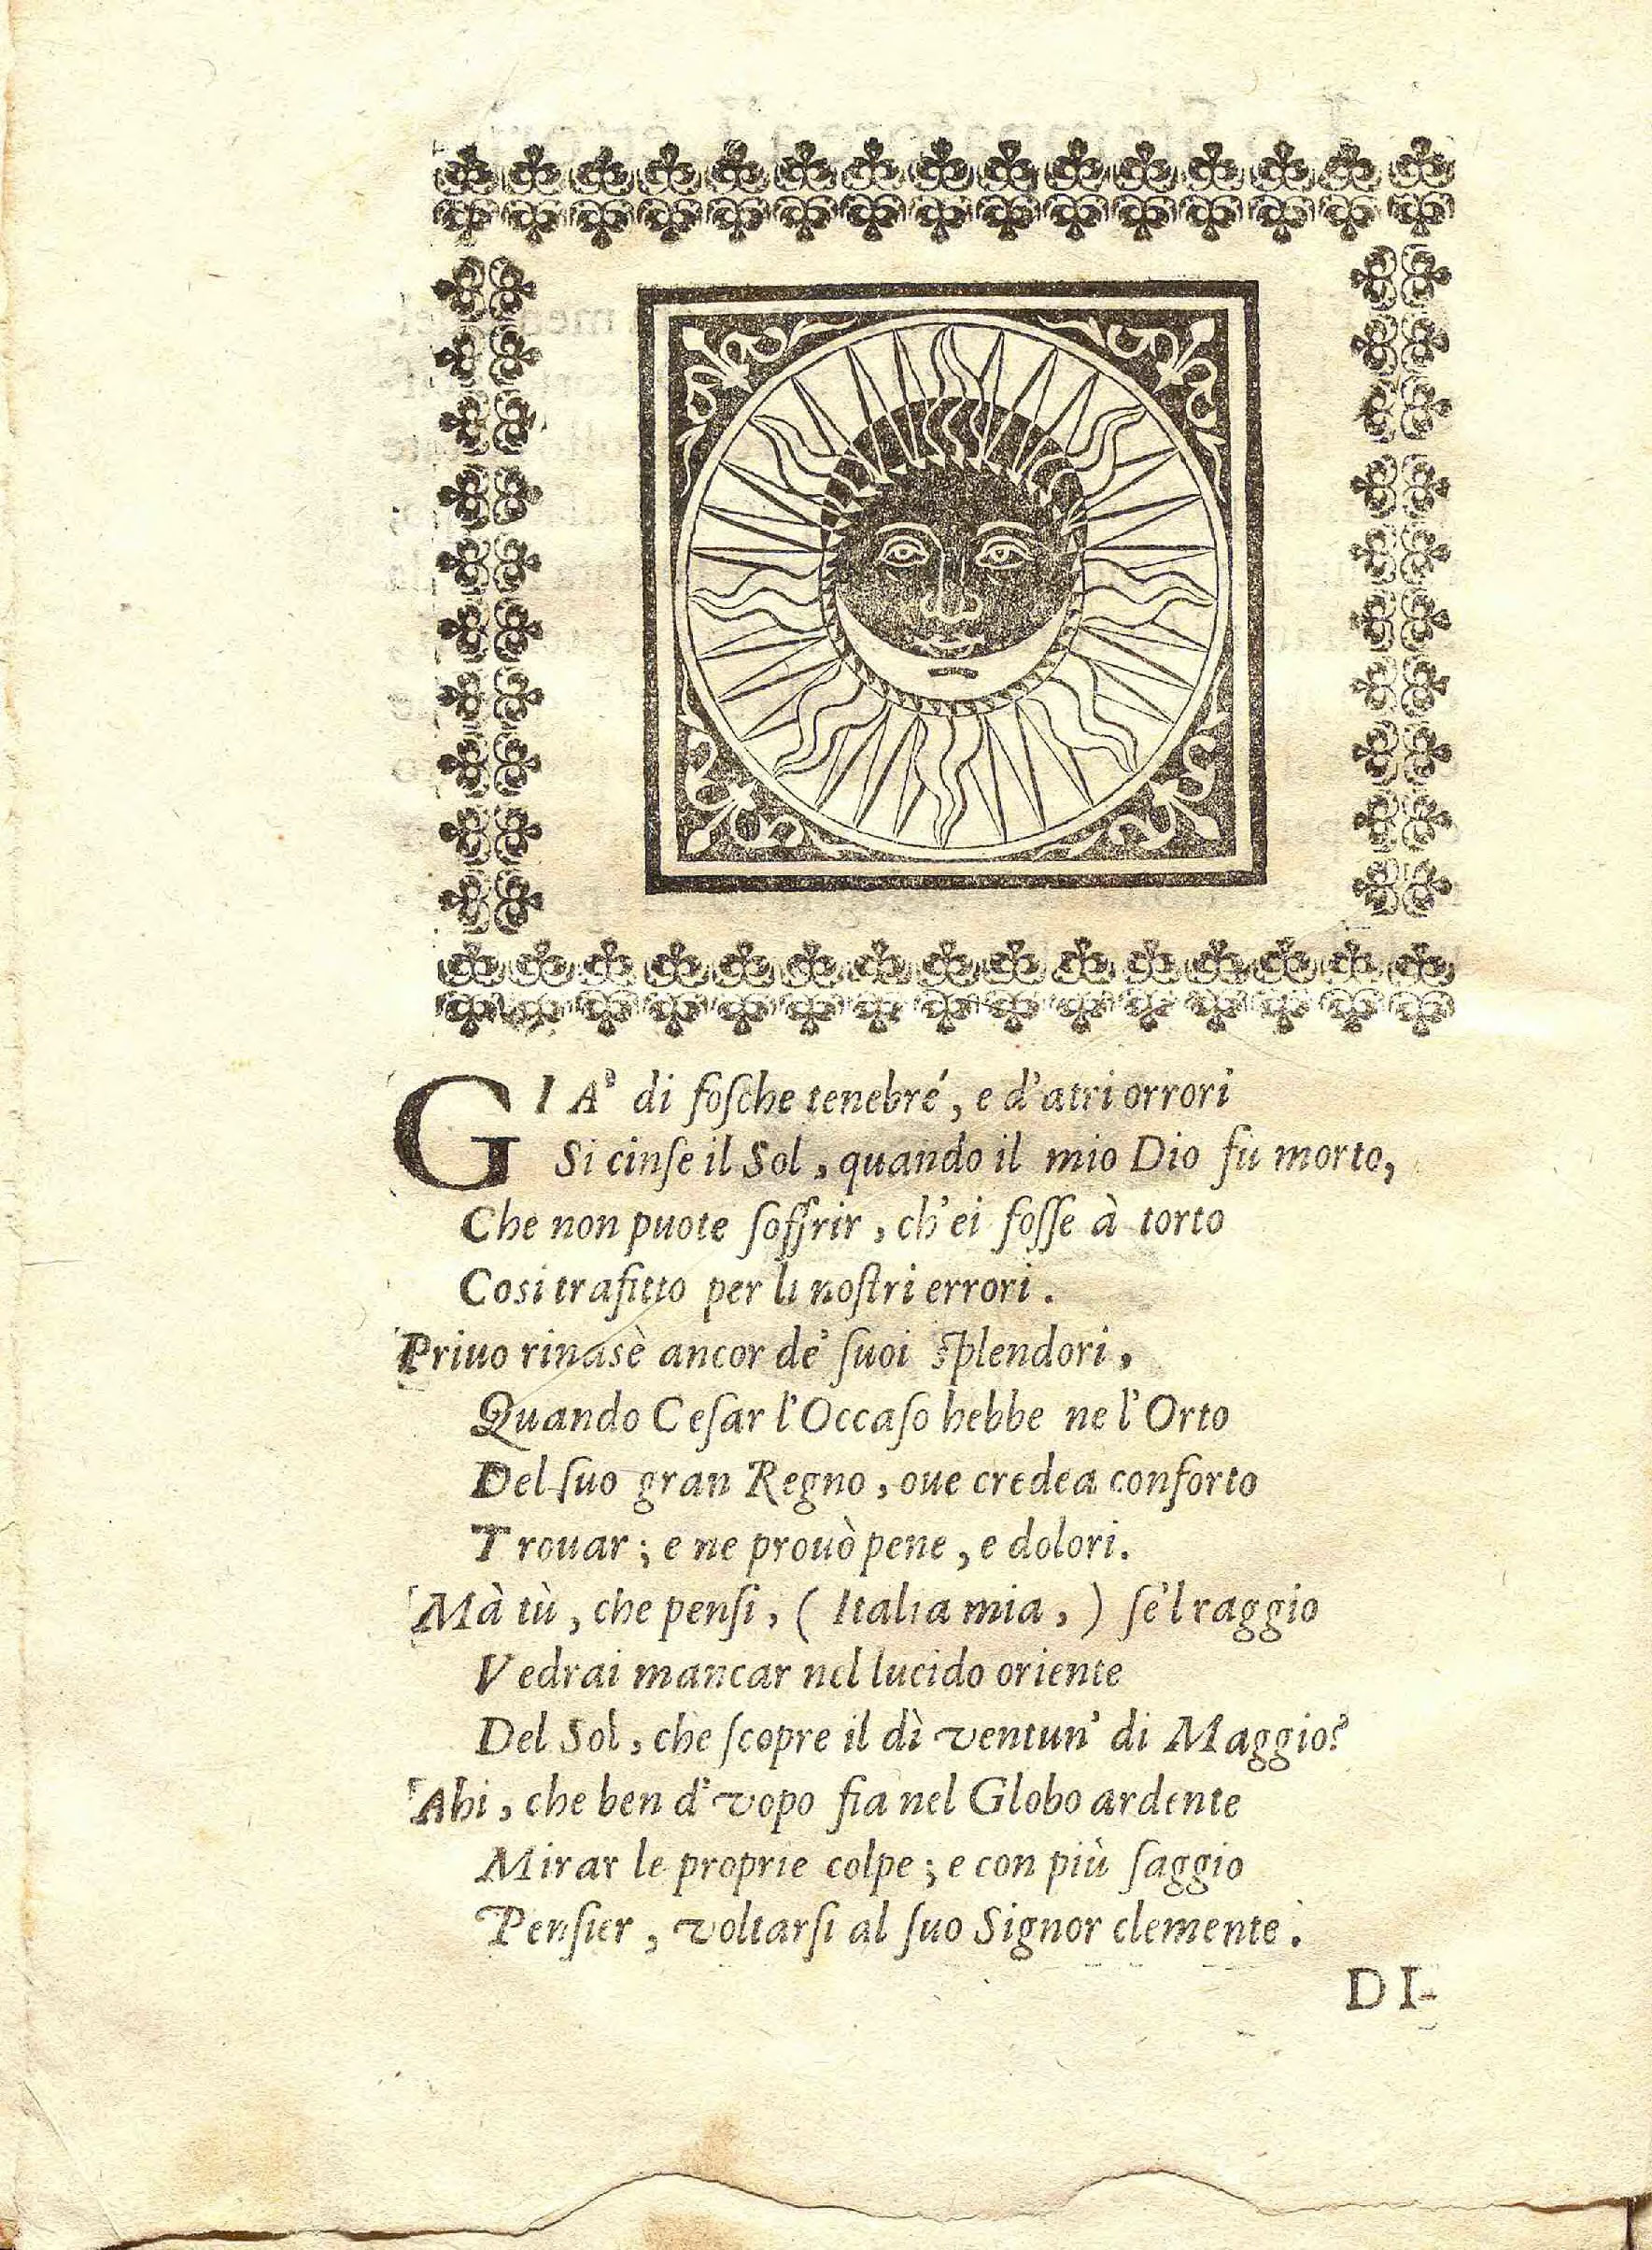 GIA' di foſche tenebré, e d'atri orrori
Si cinſe il Sol, quando il mio Dio fù morto,
Che non puote ſoffrir, ch'ei foſſe à torto
Cosi trafitto per li noſtri errori.
Priuo rinasè ancor de' ſuoi ſplendori,
Quando Ceſar l'Occaſo hebbe ne l'Orto
Del ſuo gran Regno, oue credea conforto
Trouar; e ne prouò pene, e dolori.
Mà tù, che penſi, (Italia mia,) ſe'l raggio
Vedrai mancar nel lucido oriente
Del Sol, che ſcopre il dì ventun' di Maggio?
Ahi, che ben d'vopo fia nel Globo ardente
Mirar le proprie colpe; e con più ſaggio
Penſier, voltarſi al ſuo Signor clemente.
DI-